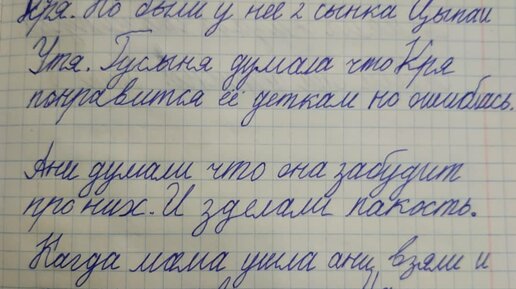 Кря. Но были у неё 2 сынка Цыпа и
Утя. Гусыня думала что Кря
понравится её деткам но ошиблась.
Ани думали что она забудит
про них. И зделали пакость.
Кагда мама ушла ани взяли и